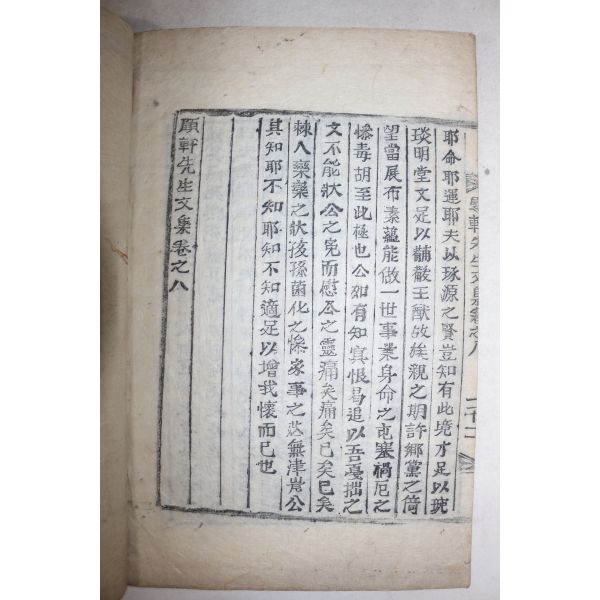 耶命耶運耶夫以琢源之賢豈知有此境才足以琬
琰明堂文足以黼黻王猷故族親之期許鄉黨之倚
望當展布素蘊能做一世事業身命之屯塞禍厄之
慘毒胡至此極也公如有知冥恨曷追以吾戞拙之
文不能狀公之寃而慰公之靈痛矣痛矣已矣已矣
棘人欒欒之狀孩孫菌化之慘家事之茫無津岸公
其知耶不知耶知不知適足以增我懷而已也
頤軒先生文集卷之八
軒先生文集卷之八
二十二